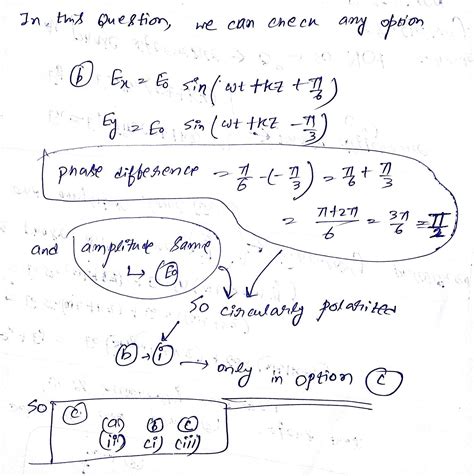 In this Question, we can check any option
(b) Ex = E0 sin(ωt + kz + π/6)
Ey = E0 sin(ωt + kz - π/3)
phase difference = π/6 - (-π/3) = π/6 + π/3
= π+2π/6 = 3π/6 = π/2
and amplitude same
↳ E0
So circularly polarized
(b) → (i) → only in option (c)
So (c)
(a) (b) (c)
(ii) (i) (iii)